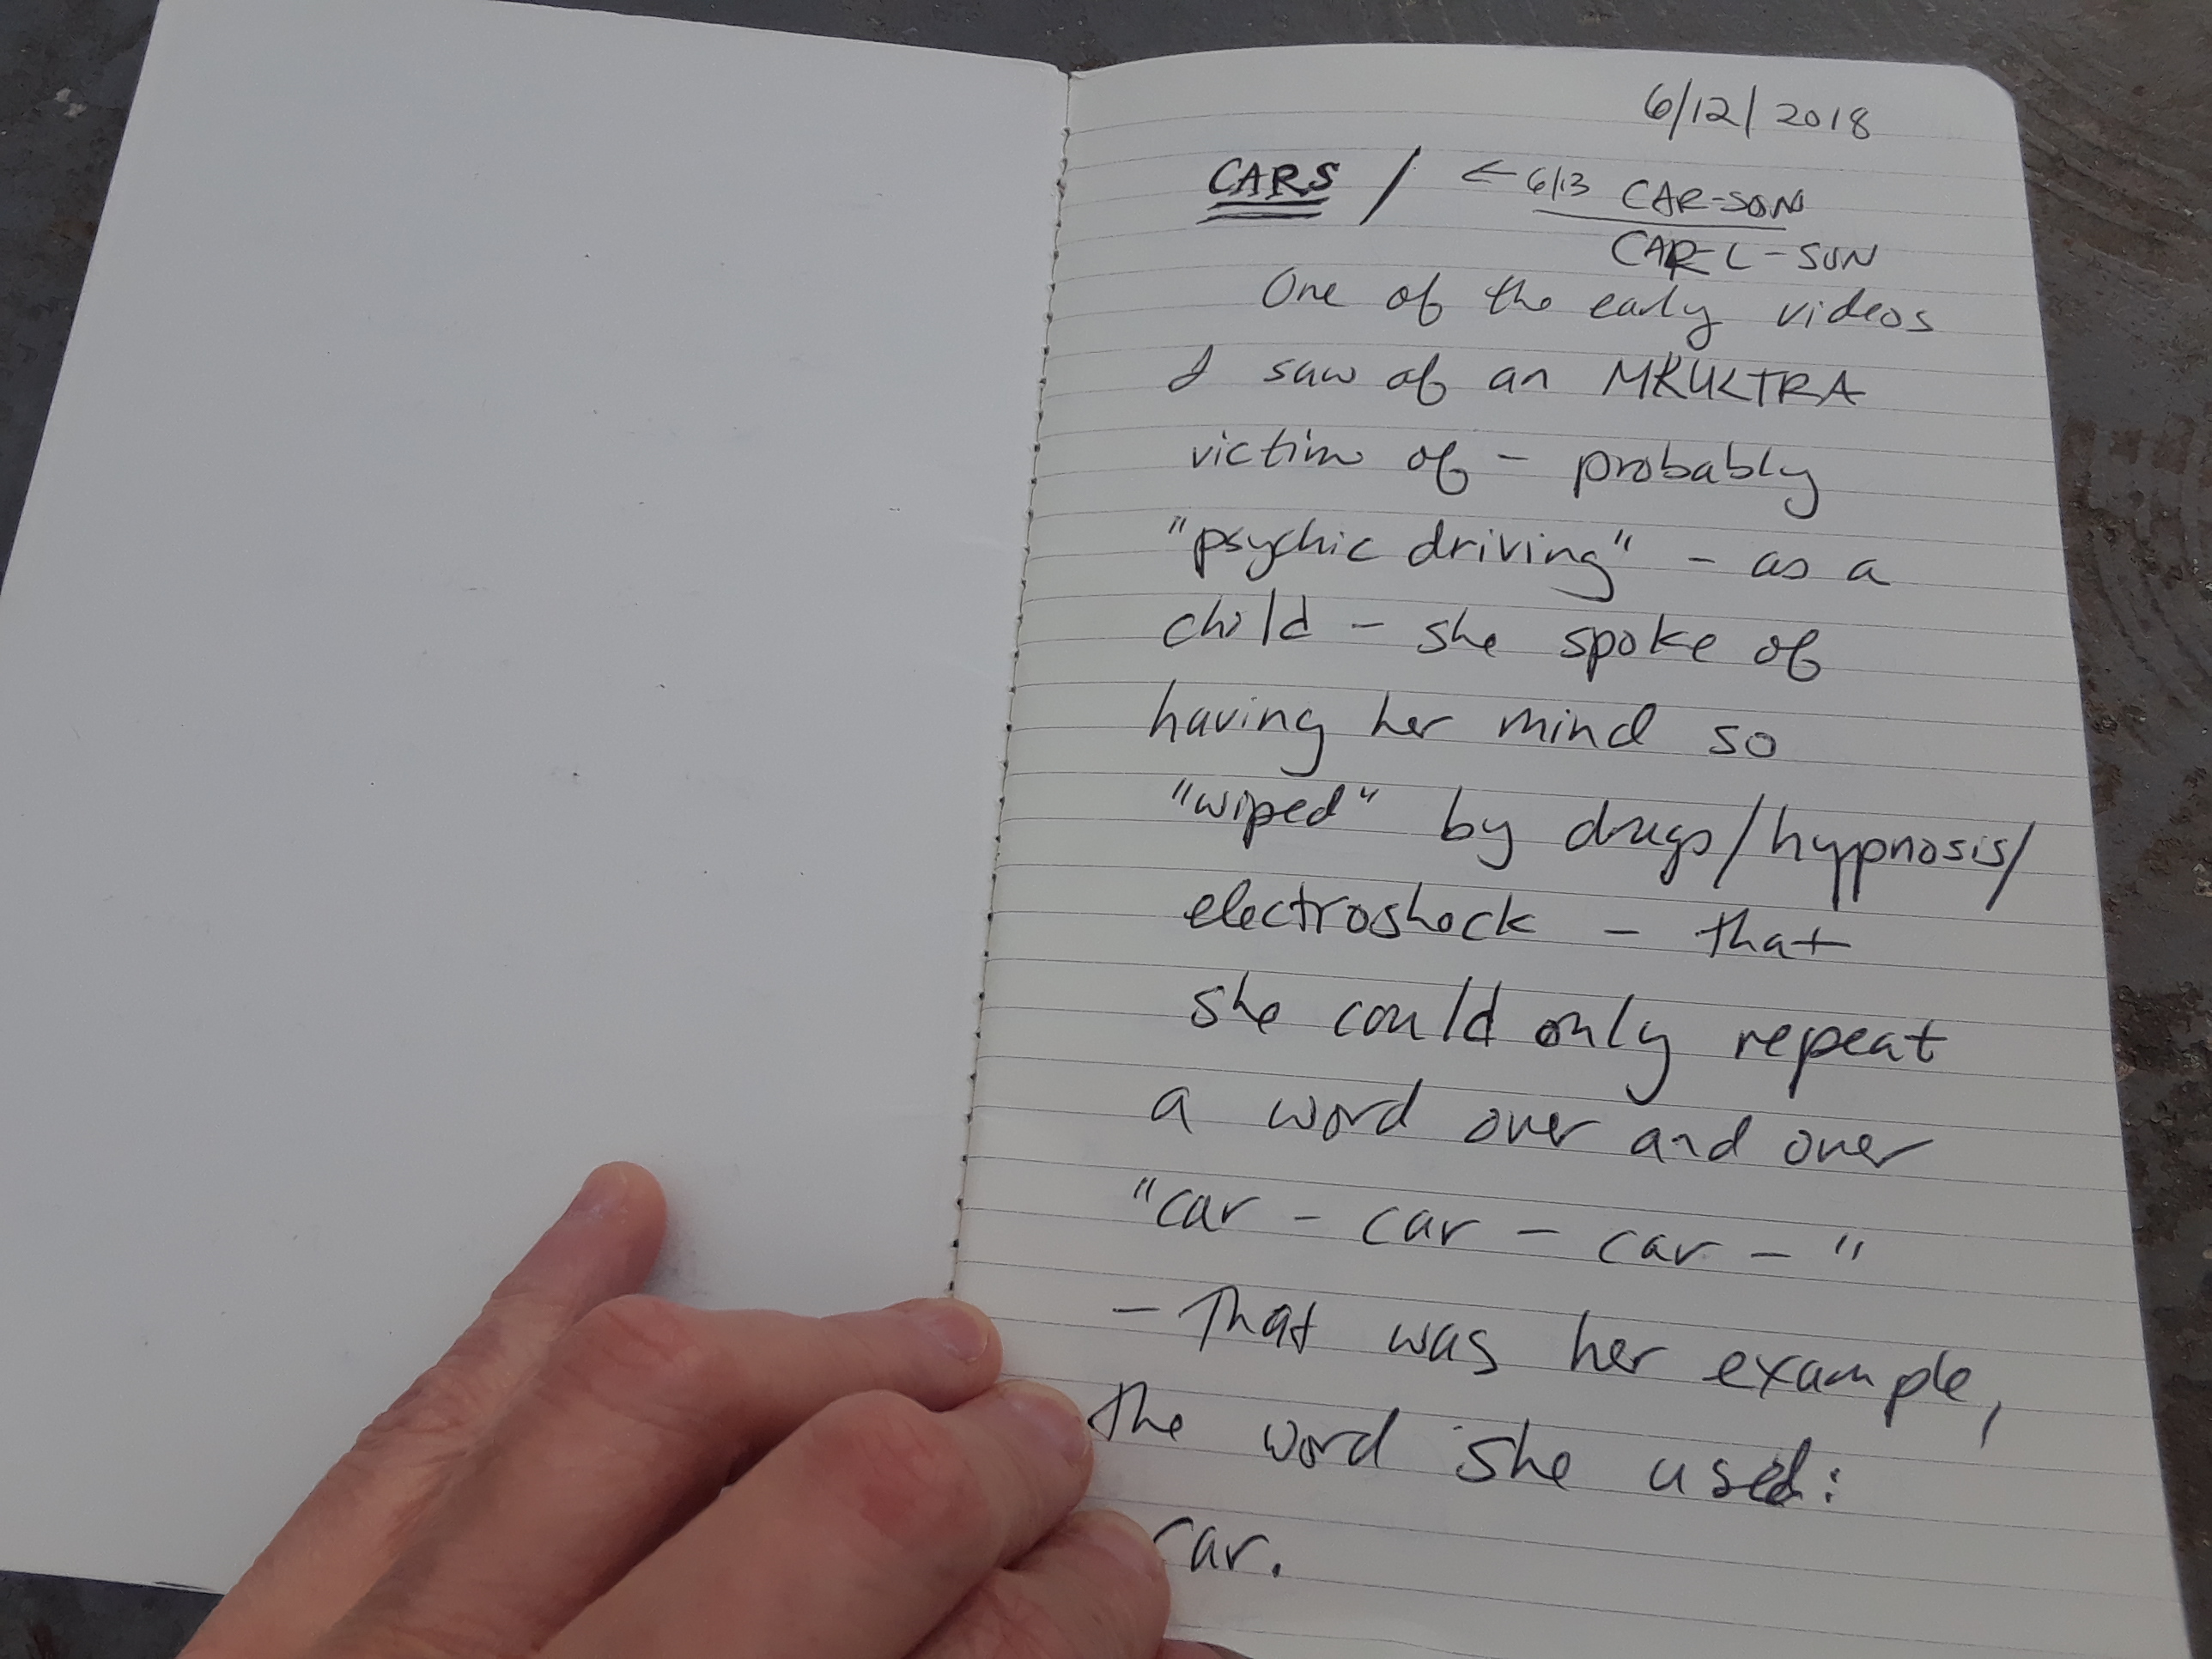 6/12/2018
CARS / ← 6/13 CAR-SON
CAR-L-SON
One of the early videos
I saw of an MKULTRA
victim of - probably
"psychic driving" - as a
child - she spoke of
having her mind so
"wiped" by drugs/hypnosis/
electroshock - that
she could only repeat
a word over and over
"car - car - car - "
- That was her example,
the word she used:
car.